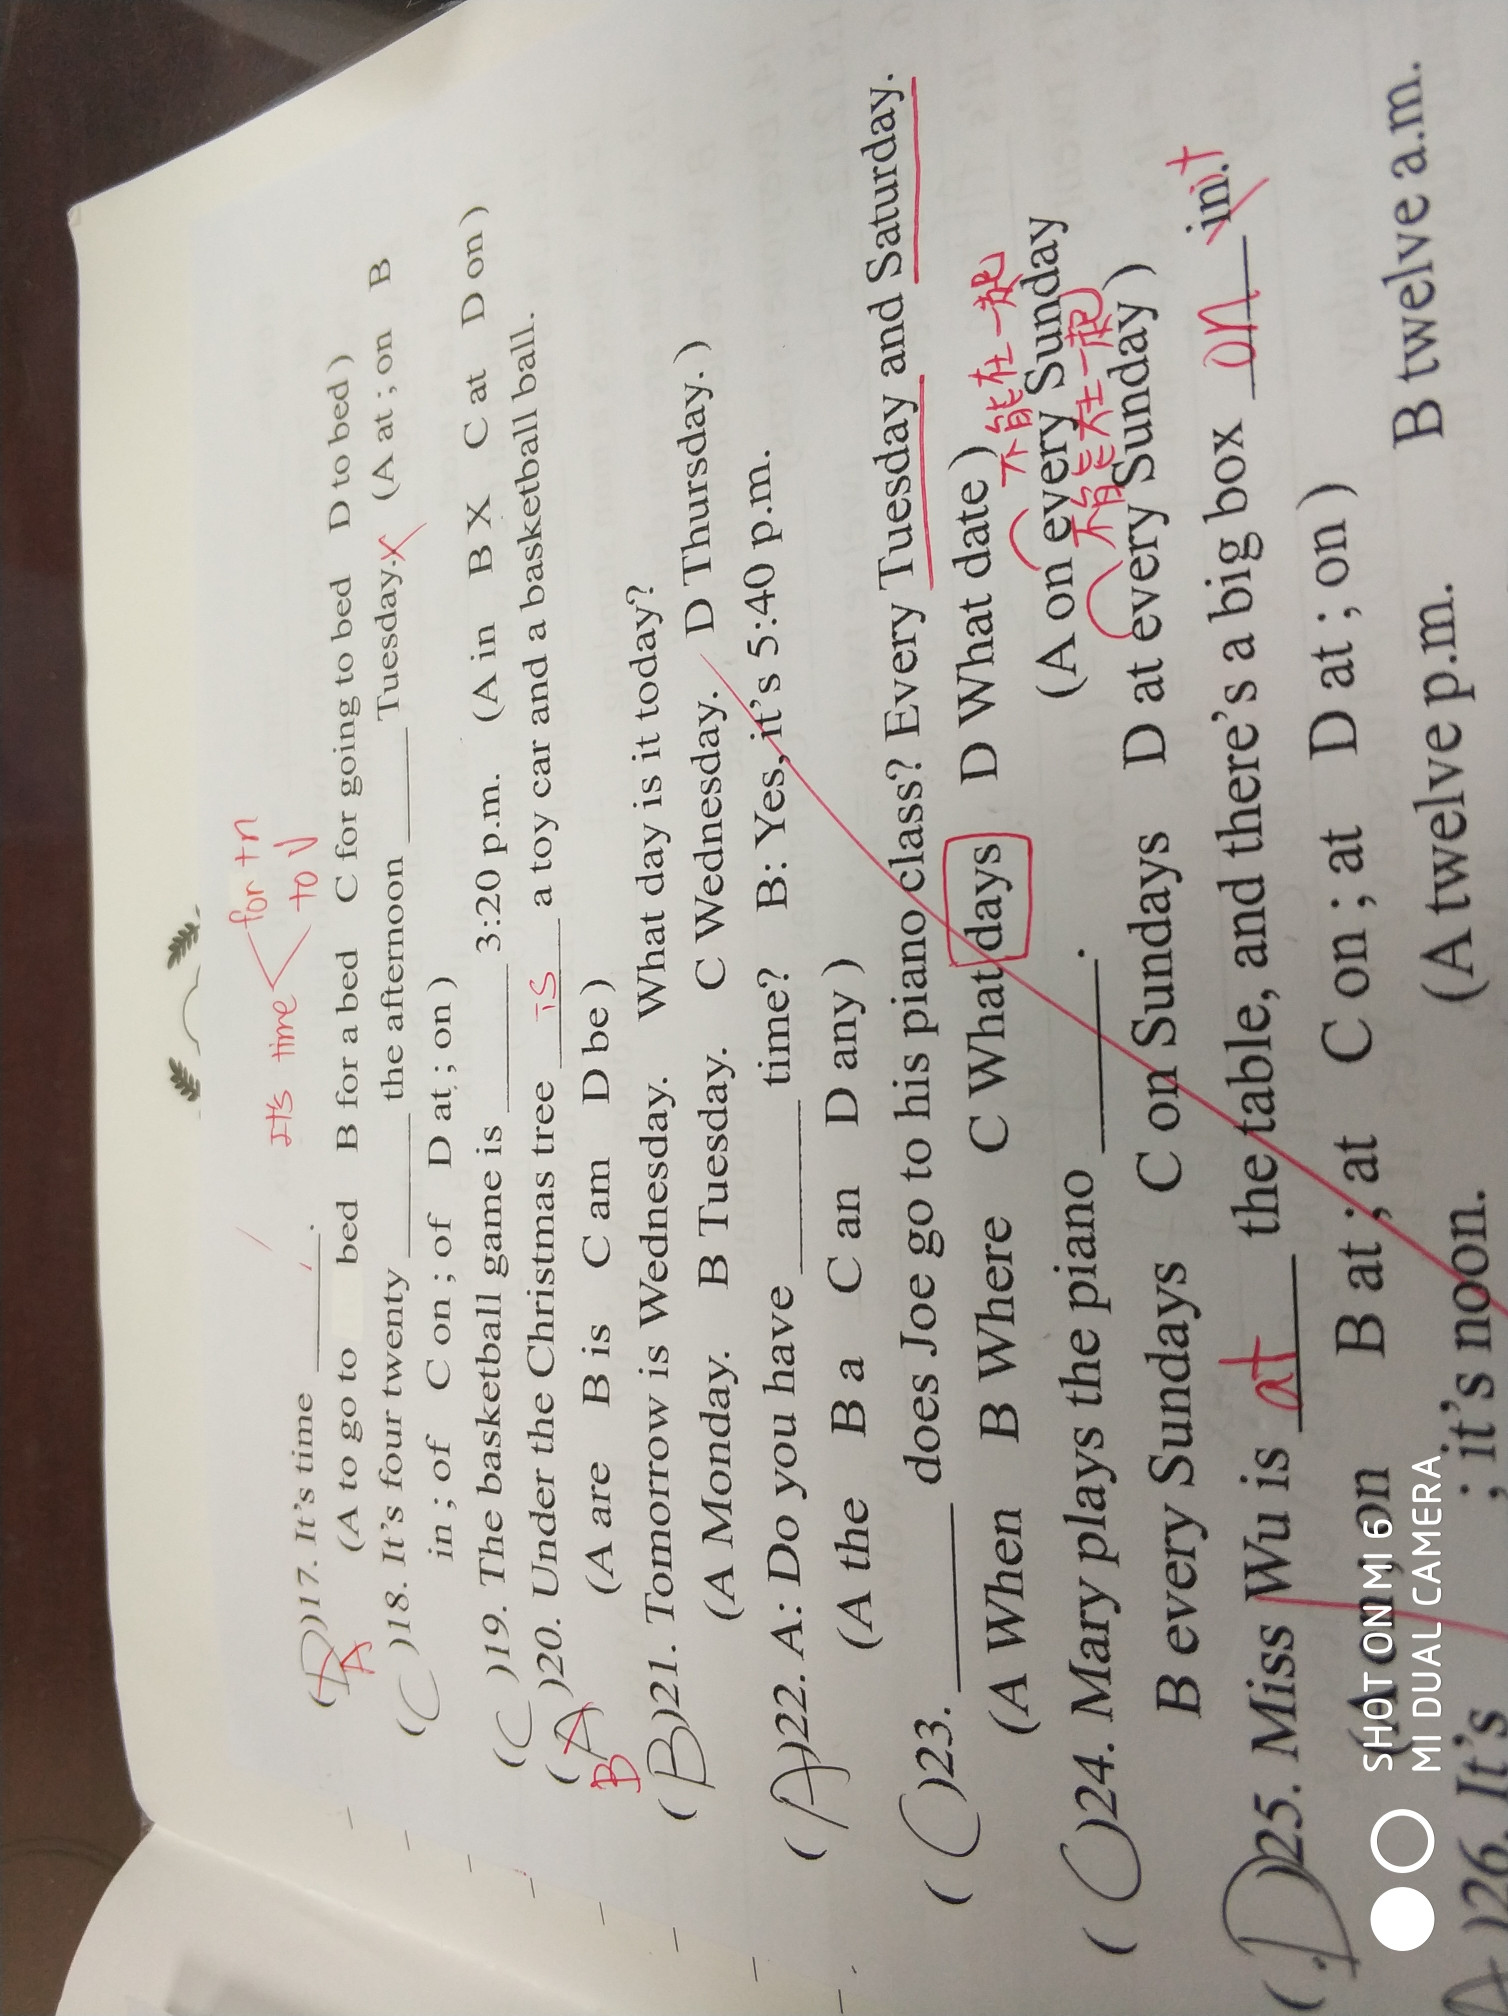 It's time < for + n
to V
(A)17. It's time ______.
(A to go to bed B for a bed C for going to bed D to bed)
(C)18. It's four twenty ______ the afternoon ______ Tuesday. (A at ; on B
in ; of C on ; of D at ; on)
(C)19. The basketball game is ______ 3:20 p.m. (A in B X C at D on)
(A)20. Under the Christmas tree is a toy car and a basketball ball.
B
(A are B is C am D be)
(B)21. Tomorrow is Wednesday. What day is it today?
(A Monday. B Tuesday. C Wednesday. D Thursday.)
(A)22. A: Do you have ______ time? B: Yes, it's 5:40 p.m.
(A the B a C an D any)
(C)23. ______ does Joe go to his piano class? Every Tuesday and Saturday.
(A When B Where C What days D What date)
不能在一起
(C)24. Mary plays the piano ______. (A on every Sunday
不能在一起
B every Sundays C on Sundays D at every Sunday)
(D)25. Miss Wu is at the table, and there's a big box on it.
(A on ; on B at ; at C on ; at D at ; on)
)26. It's ; it's noon. (A twelve p.m. B twelve a.m.
SHOT ON MI 6
MI DUAL CAMERA